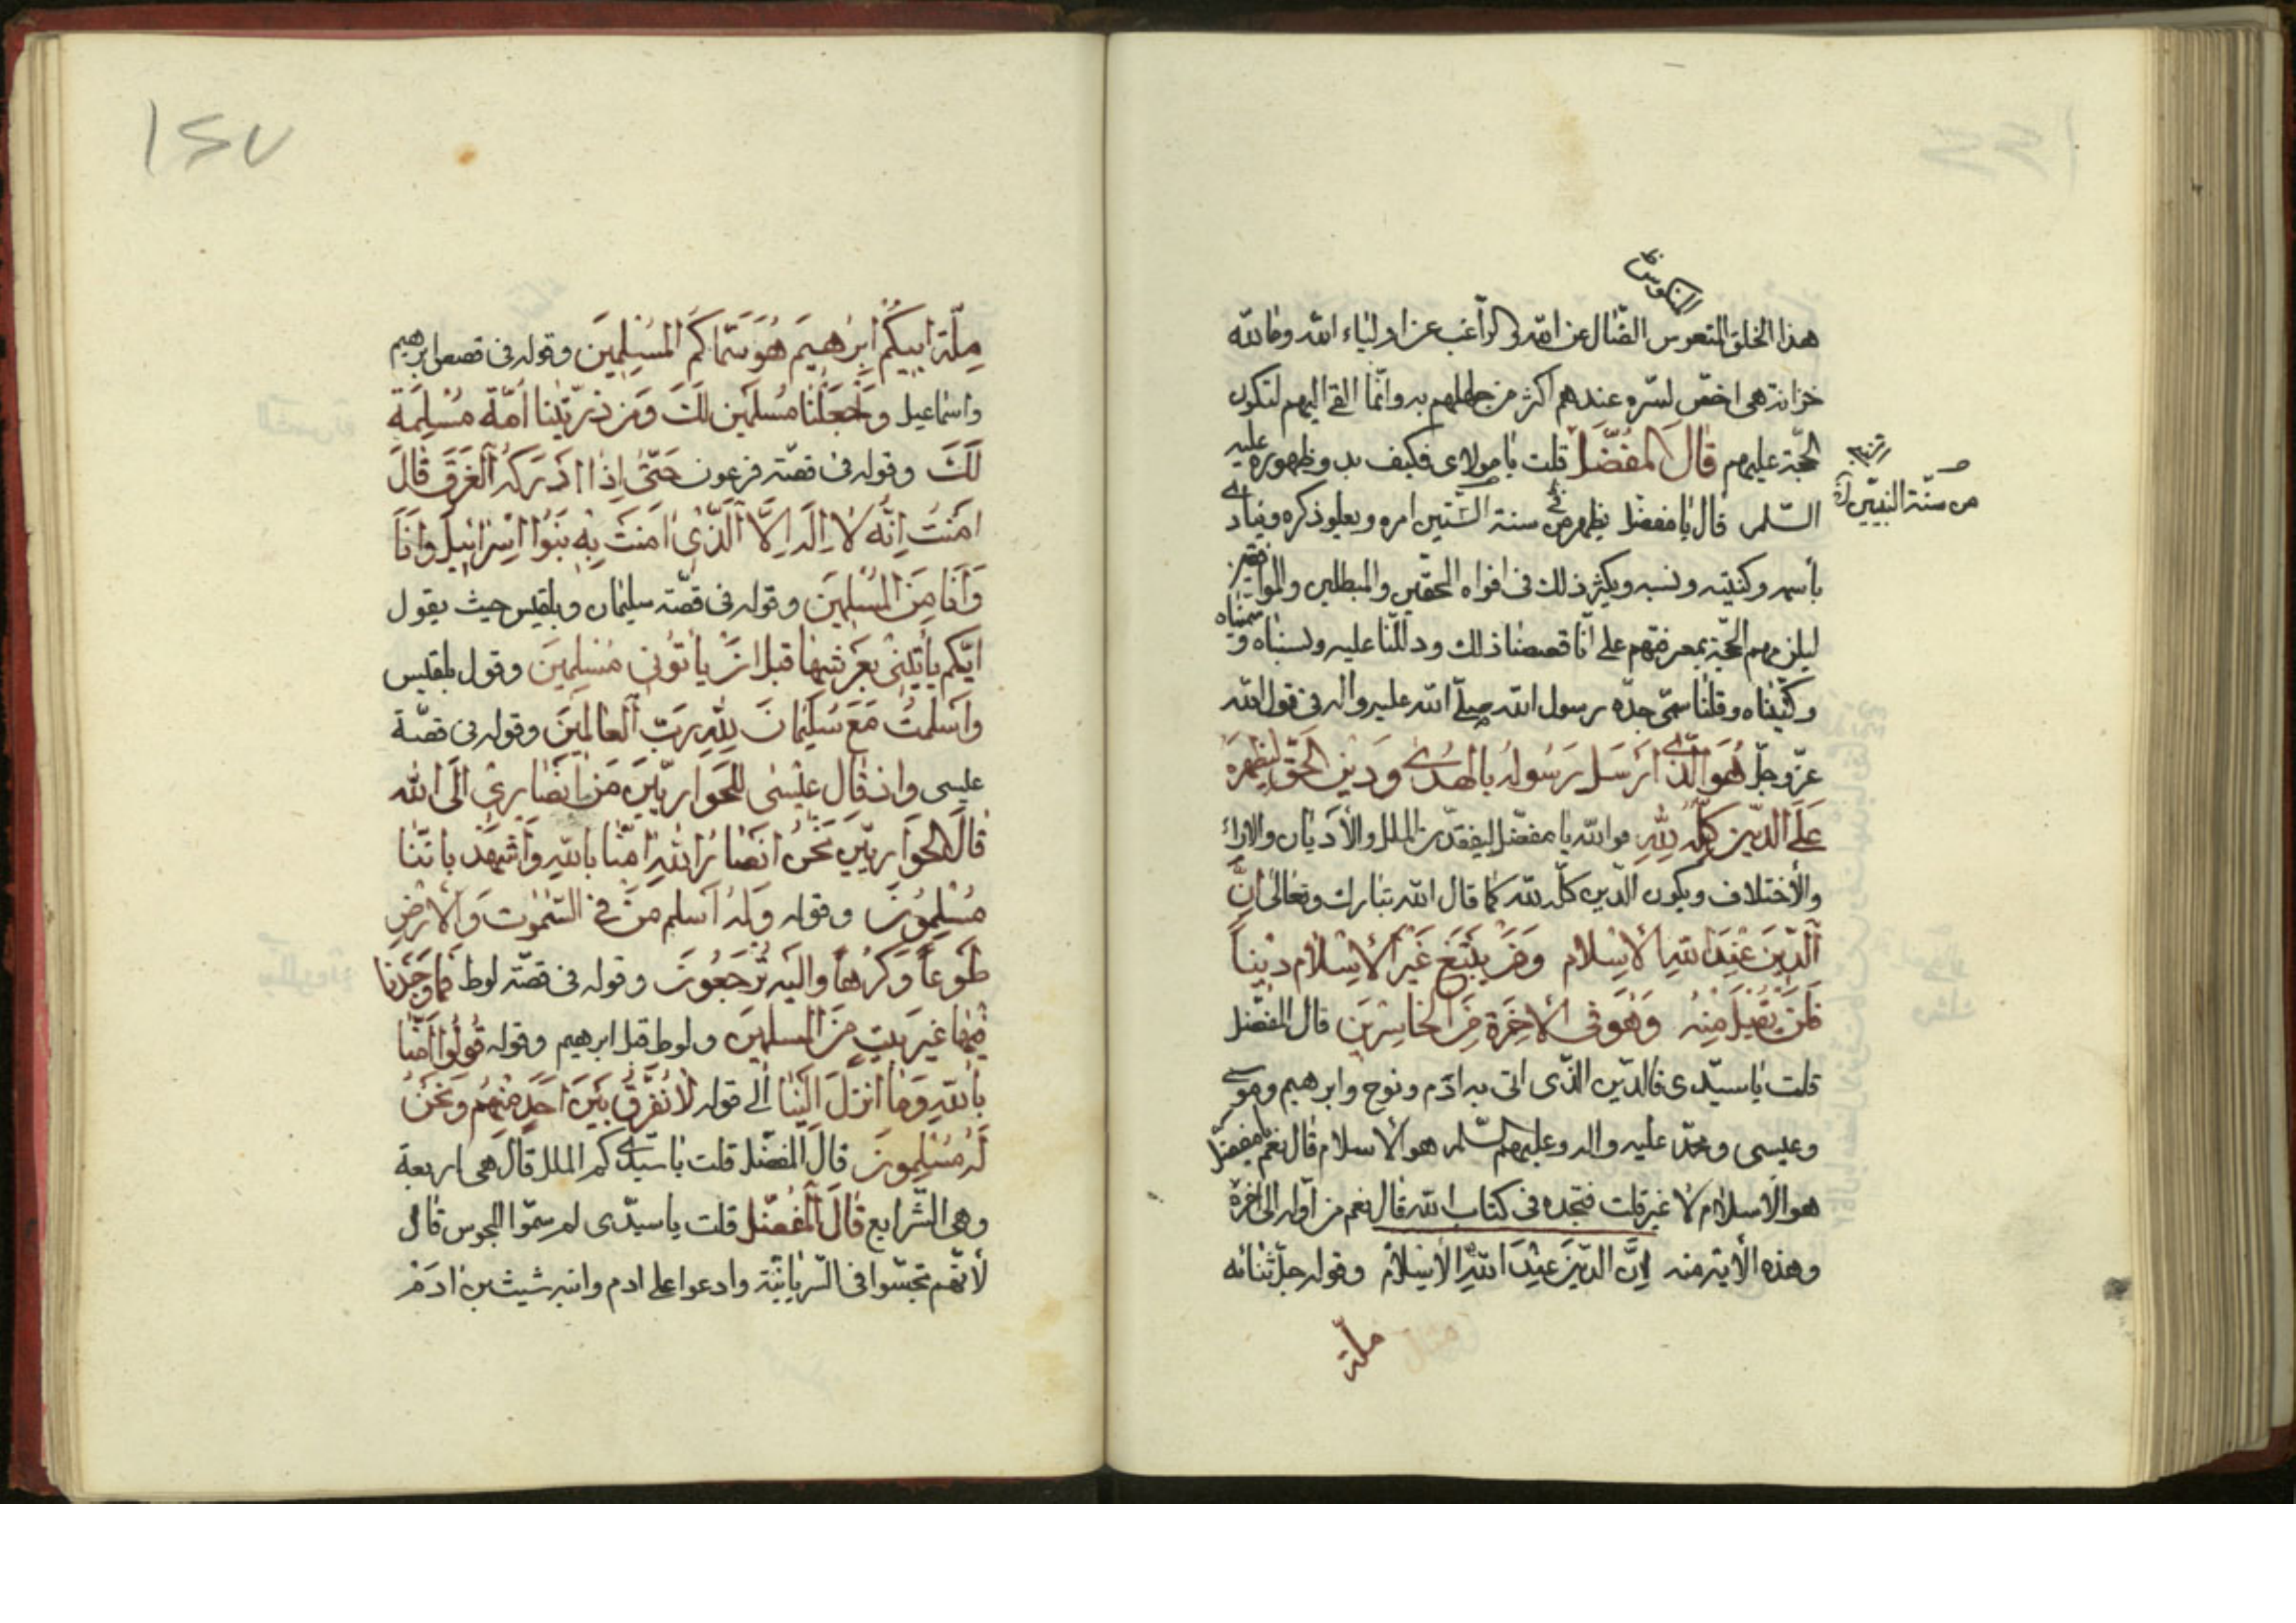 المنكوس ظ
هذا الخلق المتعوس الضّال عن الله والراغب عن اولياء الله وما لله
خزانة هى اخصّ لسرّه عندهم اكثر من جهلهم به وانّما القى اليهم لتكون
الحجّة عليهم قالَ المفضّل قلت يا مولاى فكيف بدو ظهوره عليه
من سنة النبيين
السّلم قال يا مفضل يظهر من سنة الستّين امره ويعلو ذكره وينادى
بأسمه وكنيته ونسبه ويكثر ذلك فى افواه المحقّين والمبطلين والموافقين
ليلزمهم الحجّة بمعرفتهم على انّا قصصنا ذلك ودلّلنا عليه ونسبناه وسمّيناه
وكنّيناه وقلنا سمّى جدّه رسول الله صلّى الله عليه واله فى قول الله
عزّ وجلّ هُوَ الّذى اَرْسَلَ رَسُولَهُ بالهُدى وَدين الحَقّ ليُظهِرَهُ
عَلَى الدّين كلّه لِلّهِ فوالله يا مفضّل ليفقدن الملل والأديان والاراء
والأختلاف ويكون الدّين كلّه لله كما قال الله تبارك وتعالى اِنَّ
آلدّينَ عِنْدَ اللهِ الاِسْلام وَمَنْ يَبْتَغِ غَيْر الاِسْلام ديْناً
فَلَنْ يُقْبَلَ مِنْهُ وَهُوَ فى الاخِرَة مِنَ الخاسِرينَ قال المفضّل
قلت يا سيّدى فالدّين الذّى اتى به ادَم ونوح وابرهيم وموسى
وعيسى ومحمّد عليه واله وعليهم السّلم هو الاسلام قال نعم يا مفضّل
هو الاسلام لا غير قلت فنجده فى كتاب الله قال نعم من اوّله الى اخره
وهذه الأية منه اِنَّ الدّينَ عِنْدَ اللهِ الاِسْلامُ وقوله جلّ ثنائه
ملّة
١٤٧
مِلّة ابيكُمْ اِبْرهيمَ هُوَ سَمّاكُمْ المُسْلِمينَ وقوله فى قصص ابرهيم
واسماعيل وَاجْعَلْنا مُسْلمَين لَكَ وَمن ذرّيّتنا اُمّةً مُسْلِمَةً
لَكَ وقوله فى قصّة فرعون حَتّى اِذا ادْرَكَهُ الْغَرَقُ قالَ
امَنْتُ اَنّهُ لا اِلهَ اِلّا الّذى امَنَتْ بِه بَنُوا اِسْرائيلَ وانَا
وَاَنَا مِنَ المُسْلِمينَ وقوله فى قصّة سليمان وبلقيس حيث يقول
ايّكم يأتينى بعَرْشِها قبل انْ يأتونى مُسْلِمينَ وقول بلقيس
واَسْلمتُ مَعَ سُلَيْمانَ لِلّهِ رَبّ الْعالَمينَ وقوله فى قصّة
عليسى واذ قال عيْسى للحَواريّينَ مَنْ اَنْصارى اِلَى الله
قالَ الحَواريّين نَحْنُ انْصارُ اللهِ امَنّا باللهِ وَاشْهَدْ باَنّنا
مُسْلِمُونَ وقوله وَلهُ اَسلَم مَنْ فى السّمٰوٰت وَالاَرْضِ
طَوعاً وَكَرْهاً واليَه تُرْجَعُونَ وقوله فى قصّة لوط فَما وَجَدْنا
فيها غير بَيتٍ مِنَ المسلمينَ ولوط قبل ابرهيم وقوله قُولُوا امَنّا
باللهِ وَما اُنْزلَ اِلَيْنا الى قوله لا نُفَرّقُ بَيْنَ اَحَدٍ مِنْهُم وَنَحْنُ
لَهُ مُسْلِمونَ قالَ المفضّل قلت يا سيّدى كم الملل قال هى اربعة
وهى الشّرايع قالَ المُفضّل قلت يا سيّدى لم سمّوا المجوس قال
لأنّهم تمجّسوا فى السّريانيّة وادعوا على ادم وابنه شيث بن ادَمَ